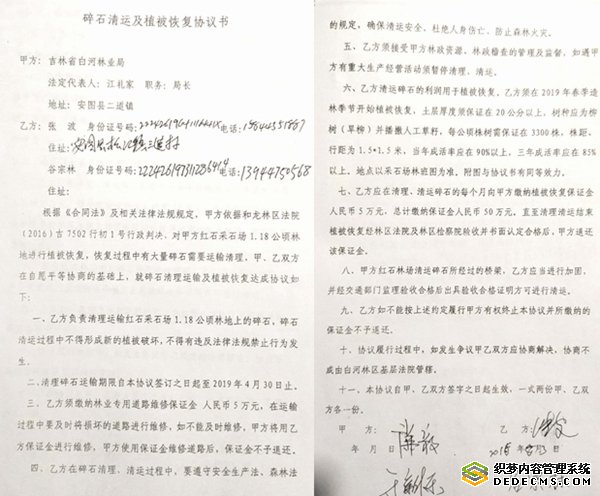 碎石清运及植被恢复协议书
甲方：吉林省白河林业局
法定代表人：江礼家 职务：局长
地址：安图县二道镇
乙方：张 波 身份证号码： 电话：
住址：
谷宗林 身份证号码： 电话：13944750568
住址：
根据《合同法》及相关法律法规规定，甲方依据和龙林区法院
（2016）吉 7502 行初 1 号行政判决，对甲方红石采石场 1.18 公顷林
地进行植被恢复，恢复过程中有大量碎石需要运输清理，甲、乙双方
在自愿平等协商的基础上，就碎石清理运输及植被恢复达成协议如
下：
一、乙方负责清理运输红石采石场 1.18 公顷林地上的碎石，碎石
清运过程中不得形成新的植被破坏，不得有违反法律法规禁止行为发
生。
二、清理碎石运输期限自本协议签订之日起至 2019 年 4 月 30 日止。
三、乙方须缴纳林业专用道路维修保证金 人民币 5 万元，在运输
过程中要及时将损坏的道路进行维修，如不能及时维修，甲方将用乙
方保证金进行维修，甲方使用保证金维修道路后，保证金不予退还。
四、乙方在碎石清理，清运过程中，要遵守安全生产法、森林法
的规定，确保清运安全、杜绝人身伤亡、防止森林火灾。
五、乙方须接受甲方林政资源、林政稽查的管理及监督，如遇甲
方有重大生产经营活动须暂停清理、清运。
六、乙方清运碎石的利润用于植被恢复。乙方须在 2019 年春季造
林季节开始植被恢复，土层厚度须保证在 20 公分以上，树种应为柳
树（旱柳）并播撒人工草籽，每公顷株树需保证在 3300 株，株距、
行距为 1.5*1.5 米，当年成活率应在 90%以上，三年成活率应在 85%
以上。地点以采石场林班图为准，附图与协议书有同等效力。
七、乙方应在清理、清运碎石的每个月向甲方缴纳植被恢复保证金
人民币 5 万元，总计缴纳保证金人民币 50 万元。直至清理清运结束
植被恢复经林区法院及林区检察院验收并书面认定合格后，甲方退还
该保证金。
八、甲方红石林场清运碎石所经过的桥梁，乙方应当进行加固，
并经交通部门监理验收合格后出具验收合格证明方可进行清运。
九、乙方如不能按上述约定履行甲方有权终止本协议并所缴纳的
保证金不予退还。
十、协议履行过程中，如发生争议甲乙双方应协商解决，协商不
成由白河林区基层法院管辖。
十一、本协议自甲、乙双方签字之日起生效，一式两份甲、乙双
方各一份。
甲 方： 乙 方：
年 月 日 年 月 日
织梦内容管理系统
DEDECMS.COM